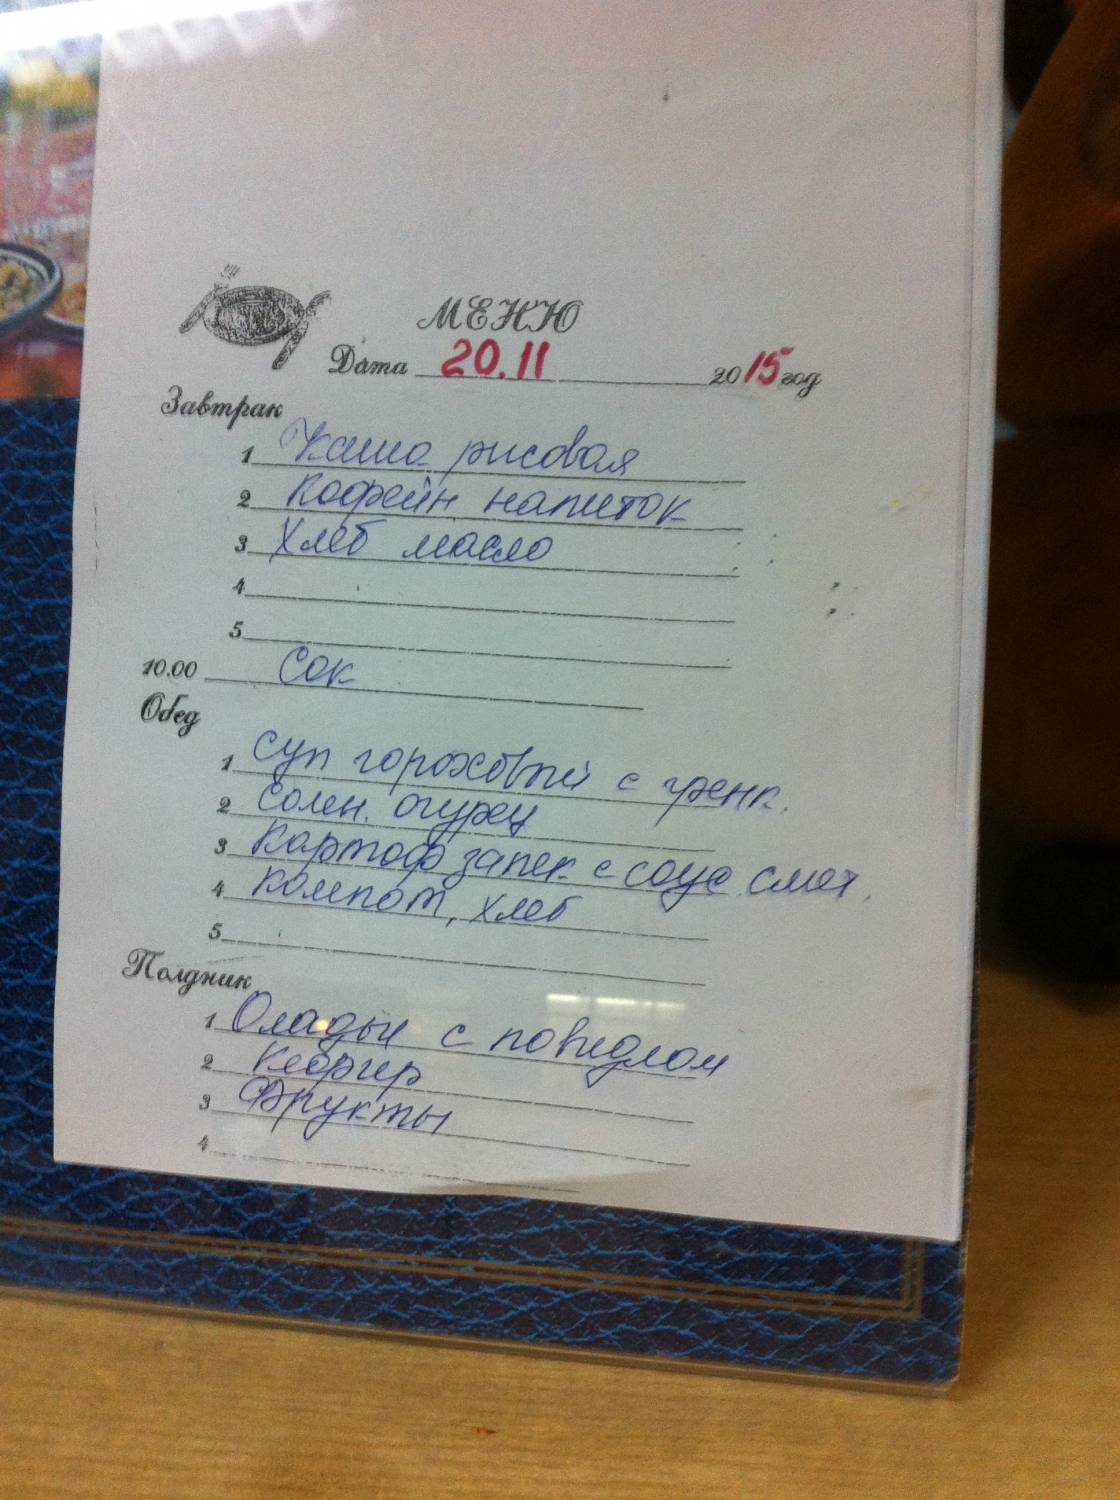 МЕНЮ
Дата 20.11 2015 год
Завтрак
1 Каша рисовая
2 Кофейн напиток
3 Хлеб масло
4
5
10.00 Сок
Обед
1 Суп гороховый с гренк.
2 Солен. огурец
3 Картоф запек с соус смет.
4 Компот, хлеб
5
Полдник
1 Оладьи с повидлом
2 Кефир
3 Фрукты
4